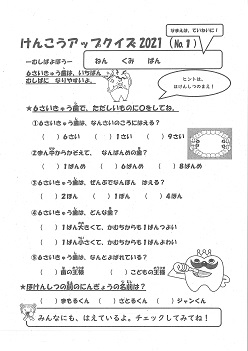 なまえは、ていねいに！
けんこうアップクイズ2021（No.1）
ーむしばよぼうー　ねん　くみ　ばん
6さいきゅう歯は、いちばん
むしばに なりやすいよ。
ヒントは、
ほけんしつのまえ！
★6さいきゅう歯で、ただしいものに○をしてね。
①6さいきゅう歯は、なんさいのころにはえる？
（　）6さい　（　）1さい　（　）4さい
②まん中からかぞえて、なんばんめの歯？
（　）1ばんめ　（　）6ばんめ　（　）8ばんめ
③6さいきゅう歯は、ぜんぶでなんぼん はえる？
（　）2ほん　（　）1ぽん　（　）4ほん
④6さいきゅう歯は、どんな歯？
（　）1ばん大きくて、かむちからも1ばんつよい
（　）1ばん小さくて、かむちからも1ばんよわい
⑤6さいきゅう歯は、なんとよばれている？
（　）歯の王様　（　）こどもの王様
★ほけんしつの前のにんぎょうの名前は？
（　）まもるくん　（　）さとるくん　（　）ジャンくん
みんなにも、はえているよ。チェックしてみてね！